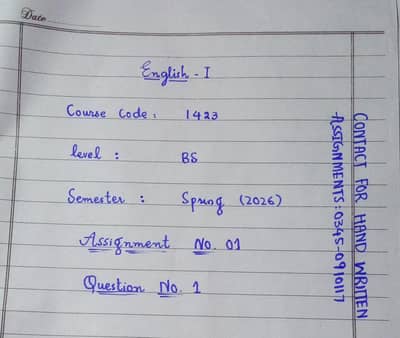 Date
English - I
Course Code : 1423
level : BS
Semester : Spring (2026)
Assignment No. 01
Question No. 1
CONTACT FOR HAND WRITTEN
ASSIGNMENTS: 0345-0910117